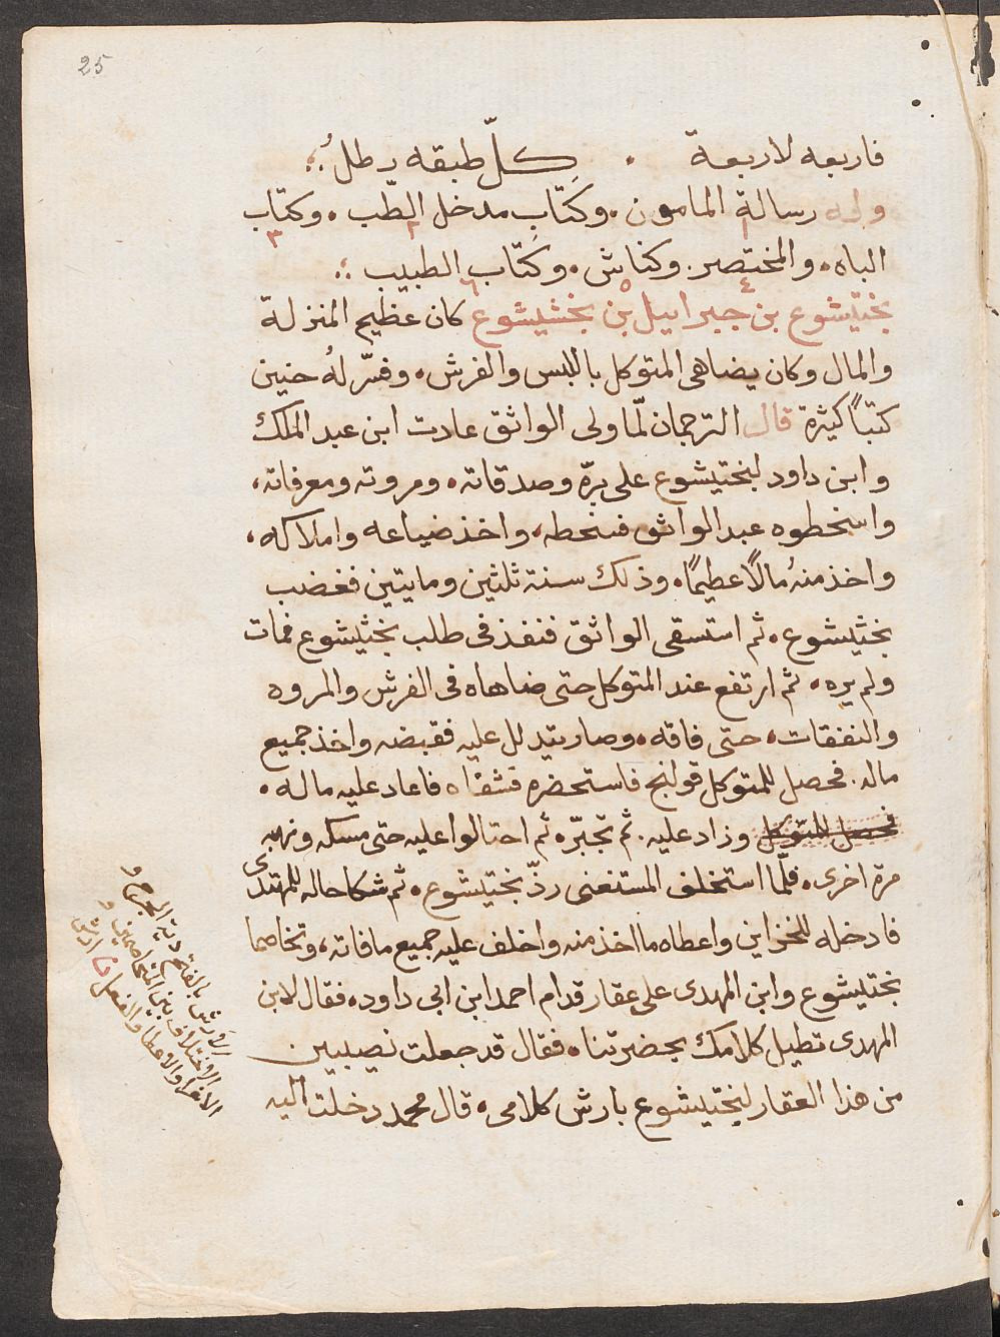 25
فاربعه لاربعة . كلّ طبقه رطلُ؛
وله رسالة المامون، وكتاب مدخل الطّب، وكتاب
١ ٢ ٣
الباه، والمختصر. وكناش، وكتاب الطبيب ؛
٤ ٥ ٦
بختيشوع بن جبراييل بن بختيشوع كان عظيم المنزلة
والمال وكان يضاهى المتوكل باللبس والفرش، وفسّر لهُ حنين
كتباً كثيرة قال الترجمان لمّا ولى الواثق عادت ابن عبد الملك
وابن داود لبختيشوع على برّه وصدقاته، ومروته ومعرفاته،
واسخطوه عبد الواثق فسخطه، واخذ ضياعه واملاكه،
واخذ منهُ مالاً عظيمًا، وذلك سنة ثلثين ومايتين فغضب
بختيشوع، ثم استسقى الواثق فنفذ فى طلب بختيشوع فمات
ولم يره، ثم ارتفع عند المتوكل حتى ضاهاه فى الفرش والمروه
والنفقات، حتى فاقه، وصار يتدلل عليه فقبضه واخذ جميع
ماله. فحصل للمتوكل قولنج فاستحضره فشفاه فاعاد عليه ماله.
فحصل للمتوكل وزاد عليه. ثم تجبّره ثم احتالوا عليه حتى مسكه ونهبه
مرة اخرى، فلمّا استخلف المستغنى ردّ بختيشوع، ثم شكا حاله للمهتدى
فادخله للخزاين واعطاه ما اخذ منه واخلف عليه جميع ما فاته، وتخاصما
بختيشوع وابن المهدى على عقار قدام احمد ابن ابى داود، فقال لابن
المهدى تطيل كلامك بحضرتنا، فقال قد جعلت نصيبين
من هذا العقار لبختيشوع بارش كلامى، قال محمد دخلت اليه
الاَرش بالفتح دية الجرح و
الاختلاف بين المتخاصمين و
الاغرا والاعطا والفعل ارش